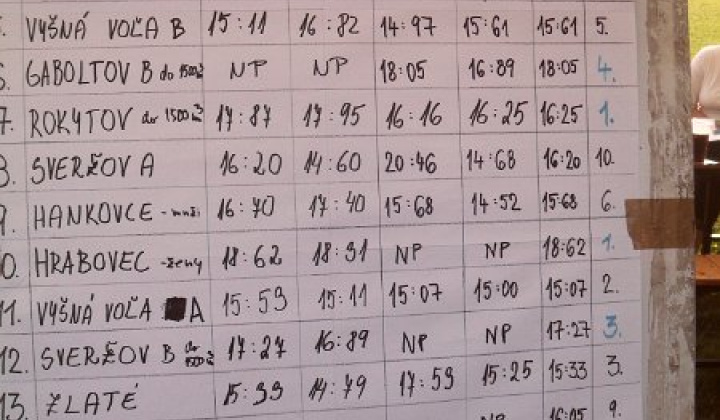 VYŠNÁ VOĽA B 15:11 16:82 14:97 15:61 15:61 5.
GABOLTOV B do 1500 NP NP 18:05 16:89 18:05 4.
7. ROKYTOV do 1500 17:87 17:95 16:16 16:25 16:25 1.
SVERŽOV A 16:20 14:60 20:46 14:68 16:20 10.
HANKOVCE - muži 16:70 17:40 15:68 14:52 15:68 6.
0. HRABOVEC - ženy 18:62 18:31 NP NP 18:62 1.
11. VYŠNÁ VOĽA A 15:53 15:11 15:07 15:00 15:07 2.
12. SVERŽOV B do 1500 17:27 16:89 NP NP 17:27 3.
13. ZLATÉ 15:33 14:79 17:53 15:25 15:33 3.
NP 16:05 9.